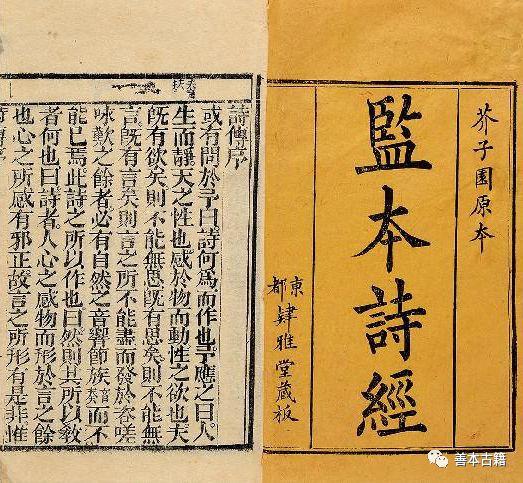 芥子園原本
監本詩經
東都肄雅堂藏板
詩傳序
或有問於予曰詩何爲而作也予應之曰人
生而靜天之性也感於物而動性之欲也夫
既有欲矣則不能無思既有思矣則不能無
言既有言矣則言之所不能盡而發於咨嗟
咏歎之餘者必有自然之音響節族而不
能已焉此詩之所以作也曰然則其所以教
者何也曰詩者人心之感物而形於言之餘
也心之所感有邪正故言之所形有是非惟
善本古籍